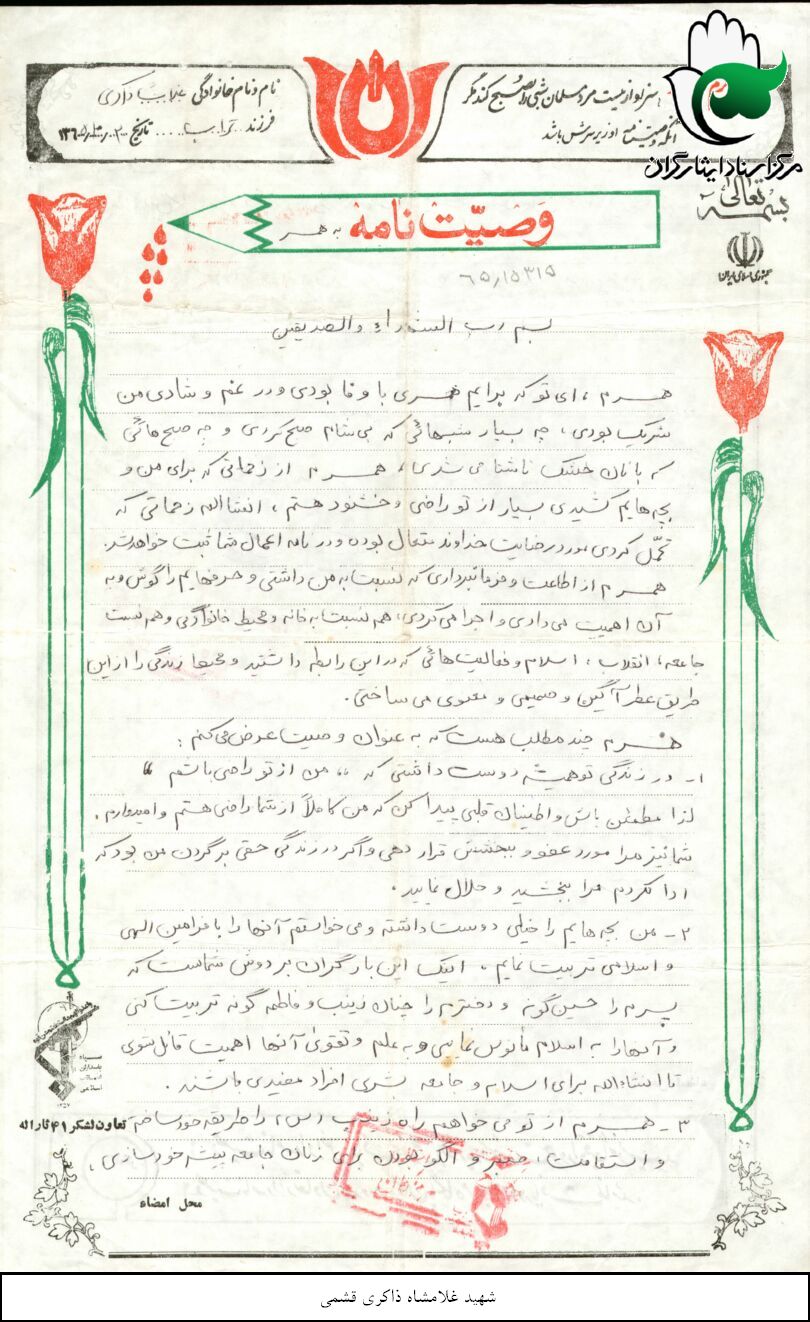 هر لوازمیت مرد مسلمان شبی را صبح کند مگر
آنکه وصیتنامه او زیر سرش باشد
نام و نام خانوادگی غلامشاه ذاکری
فرزند ... تاریخ
مرکز اسناد ایثارگران
بسمه تعالی
جمهوری اسلامی ایران
وصیّت نامه به همسر
۶۵,۱۵۳۱۵
بسم رب الشهداء والصدیقین
همسرم ، ای تو که برایم همسری با وفا بودی و در غم و شادی من
شریک بودی ، چه بسیار شبهائی که بی شام صبح کردی و چه صبح هائی
که با نان خشک ناشتا می شدی ، همسرم از زحماتی که برای من و
بچه هایم کشیدی بسیار از تو راضی و خشنود هستم ، انشاالله زحماتی که
تحمّل کردی مورد رضایت خداوند متعال بوده و در نامه اعمال شما ثبت خواهد شد.
همسرم از اطاعت و فرمانبرداری که نسبت به من داشتی و حرفهایم را گوش و به
آن اهمیت می دادی و اجرا می کردی ، هم نسبت به خانه و محیط خانوادگی و هم نسبت
جامعه ، انقلاب ، اسلام و فعالیت هائی که در این رابطه داشتید و محیط زندگی را از این
طریق عطرآگین و صمیمی و معنوی می ساختی .
همسرم چند مطلب هست که به عنوان وصیت عرض می کنم :
۱- در زندگی تو همیشه دوست داشتی که ,, من از تو راضی باشم "
لذا مطمئن باش و اطمینان قلبی پیدا کن که من کاملاً از شما راضی هستم و امیدوارم .
شما نیز مرا مورد عفو و بخشش قرار دهی و اگر در زندگی حقی بر گردن من بود که
ادا نکردم مرا ببخشید و حلال نمایید .
۲- من بچه هایم را خیلی دوست داشته و می خواستم آنها را با فرامین الهی
و اسلامی تربیت نمایم ، اینک این بار گران بر دوش شماست که
پسرم را حسین گونه و دخترم را چنان زینب و فاطمه گونه تربیت کنی
و آنها را به اسلام مأنوس نمایی و به علم و تقوی آنها اهمیت قائل شوی
تا انشاءالله برای اسلام و جامعه بشری افراد مفیدی باشند .
۳- همسرم از تو می خواهم راه زینب (س) را طریقه خود ساخته
و استقامت ، صبر و الگو بودن برای زنان جامعه پیشه خود سازی .
سپاه پاسداران انقلاب اسلامی
تعاون لشکر ۴۱ ثارالله
محل امضاء
شهید غلامشاه ذاکری قشمی